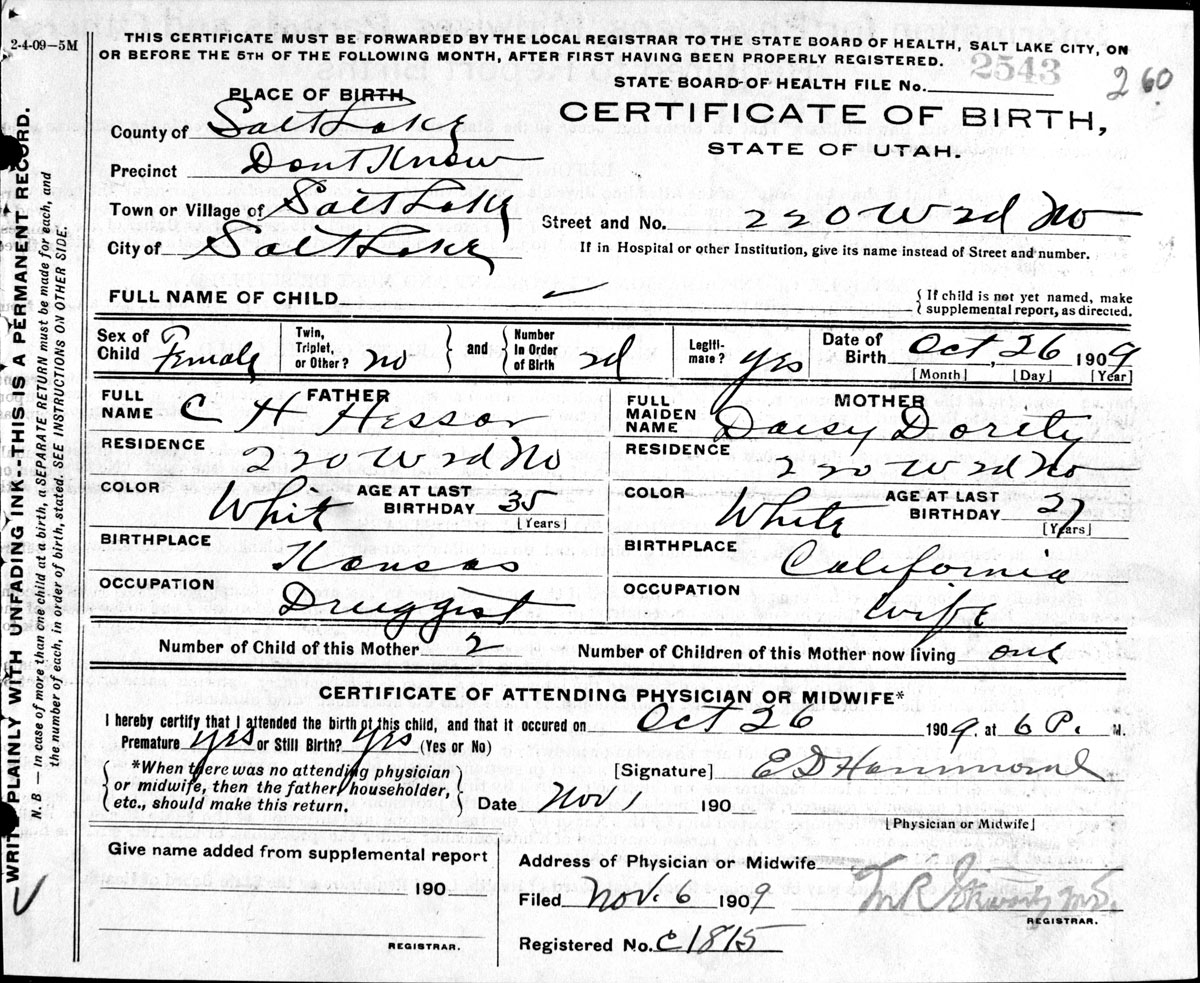 2-4-09-5M
THIS CERTIFICATE MUST BE FORWARDED BY THE LOCAL REGISTRAR TO THE STATE BOARD OF HEALTH, SALT LAKE CITY, ON
OR BEFORE THE 5TH OF THE FOLLOWING MONTH, AFTER FIRST HAVING BEEN PROPERLY REGISTERED.
2543
260
STATE BOARD OF HEALTH FILE No.
PLACE OF BIRTH
CERTIFICATE OF BIRTH,
STATE OF UTAH.
County of Salt Lake
Precinct Dont Know
Town or Village of Salt Lake
Street and No. 220 W 2rd No
City of Salt Lake
If in Hospital or other Institution, give its name instead of Street and number.
FULL NAME OF CHILD
{If child is not yet named, make
supplemental report, as directed.
Sex of Child Female
Twin, Triplet, or Other? no
and
Number in Order of Birth 2d
Legiti-mate? yes
Date of Birth Oct 26, 1909
[Month] [Day] [Year]
FATHER
FULL NAME C H Hessor
RESIDENCE 220 W 2rd No
COLOR White
AGE AT LAST BIRTHDAY 35
[Years]
BIRTHPLACE Kansas
OCCUPATION Druggist
MOTHER
FULL MAIDEN NAME Daisy Dority
RESIDENCE 220 W 2rd No
COLOR White
AGE AT LAST BIRTHDAY 27
[Years]
BIRTHPLACE California
OCCUPATION Wife
Number of Child of this Mother 2
Number of Children of this Mother now living one
CERTIFICATE OF ATTENDING PHYSICIAN OR MIDWIFE*
I hereby certify that I attended the birth of this child, and that it occured on Oct 26 1909. at 6 P. M.
Premature yes or Still Birth? yes (Yes or No)
{*When there was no attending physician
or midwife, then the father, householder,
etc., should make this return.}
[Signature] E D Hammond
Date Nov 1 190
[Physician or Midwife]
Give name added from supplemental report
190
REGISTRAR.
Address of Physician or Midwife
Filed Nov. 6 1909
M.D.
REGISTRAR.
Registered No. c1815
WRITE PLAINLY WITH UNFADING INK--THIS IS A PERMANENT RECORD.
N. B. — In case of more than one child at a birth, a SEPARATE RETURN must be made for each, and
the number of each, in order of birth, stated. SEE INSTRUCTIONS ON OTHER SIDE.